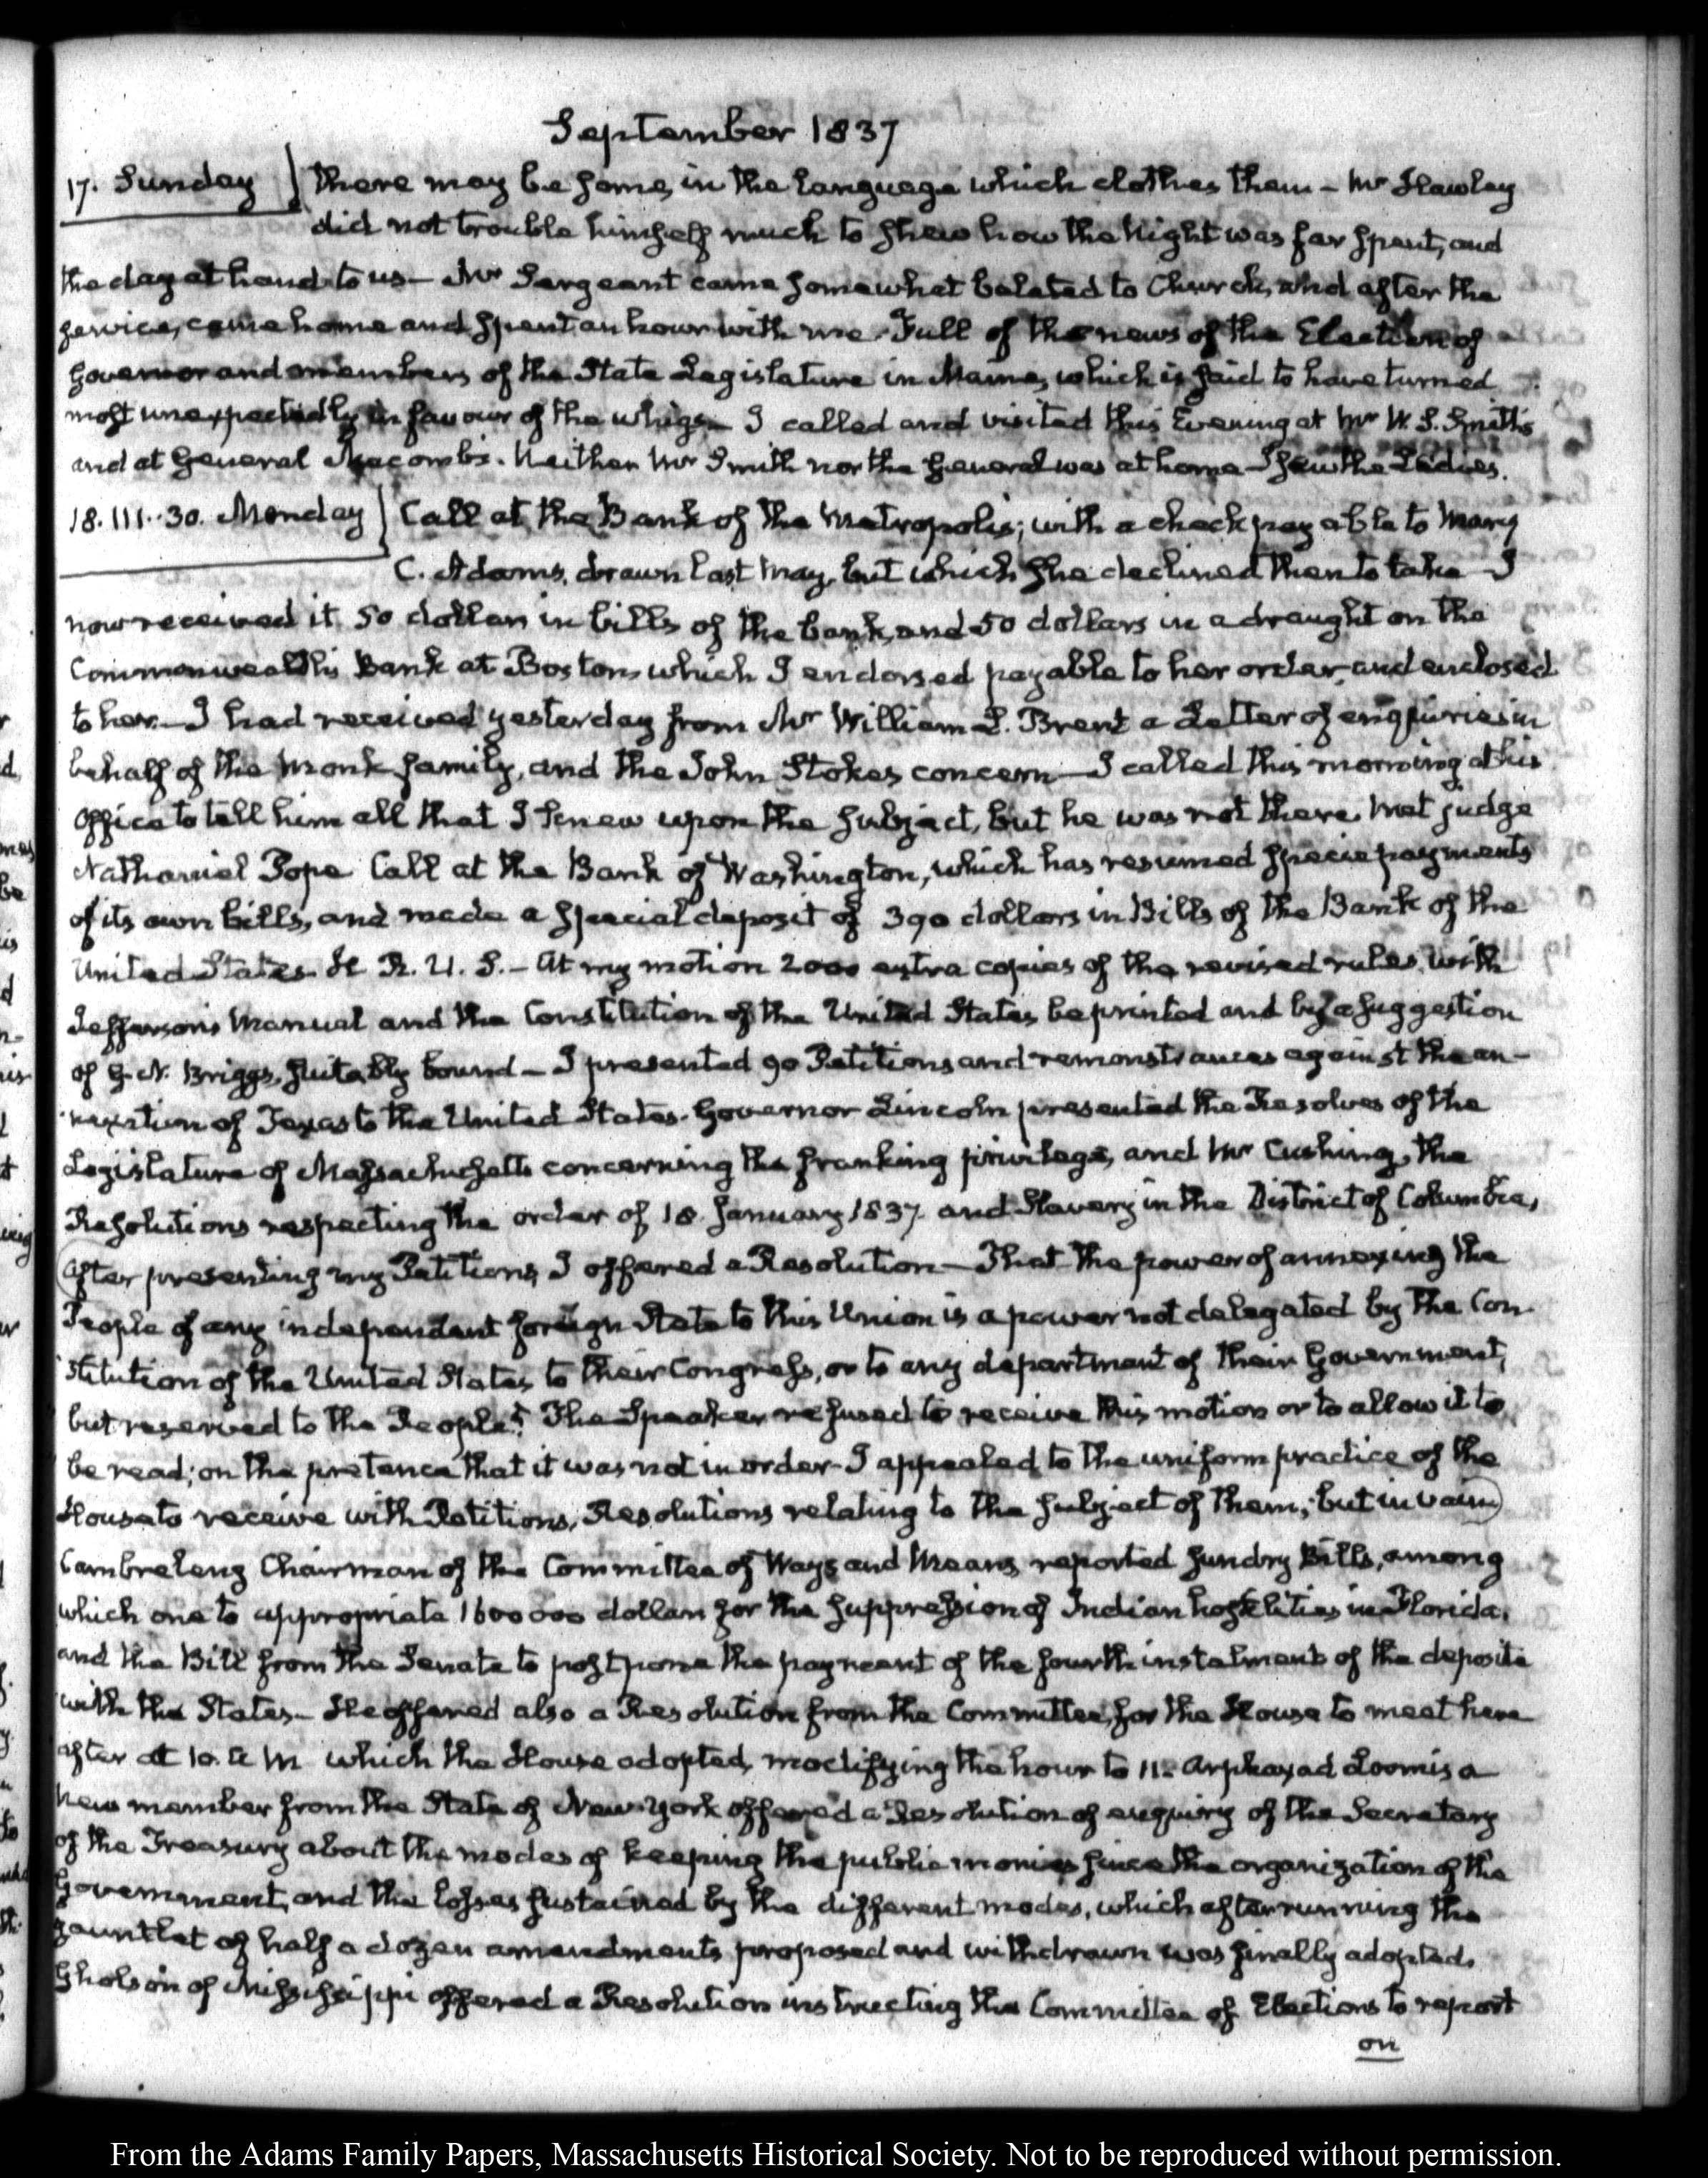 September 1837
17. Sunday } There may be some, in the language which clothes them – Mr Hawley
did not trouble himself much to shew how the Night was far spent, and
the day at hand to us – Mr Sergeant came somewhat belated to Church, and after the
service, came home and spent an hour with me. Full of the news of the Election of
Governor and members of the State Legislature in Maine, which is said to have turned
most unexpectedly in favour of the whigs – I called and visited this Evening at Mr W. S. Smith's
and at General Macomb's. Neither Mr Smith nor the General was at home – I saw the Ladies.
18. III..30. Monday } Call at the Bank of the Metropolis; with a check payable to Mary
C. Adams, drawn last May, but which she declined then to take – I
now received it 50 dollars in bills of the bank, and 50 dollars in a draught on the
Commonwealth's Bank at Boston, which I endorsed payable to her order, and enclosed
to her. – I had received yesterday from Mr William L. Brent a Letter of enquiries in
behalf of the Monk family, and the John Stokes concern – I called this morning at his
Office to tell him all that I knew upon the subject, but he was not there. Met judge
Nathaniel Pope Call at the Bank of Washington, which has resumed specie payments
of its own bills, and made a special deposit of 390 dollars in Bills of the Bank of the
United States. H. R. U. S. – At my motion 2000 extra copies of the revised rules, with
Jefferson's Manual and the Constitution of the United States be printed and by a suggestion
of G. N. Briggs, suitably bound – I presented 90 Petitions and remonstrances against the an-
nexation of Texas to the United States. Governor Lincoln presented the Resolves of the
Legislature of Massachusetts concerning the franking privilege, and Mr Cushing, the
Resolutions respecting the order of 18. January 1837. and Slavery in the District of Columbia,
After presenting my Petitions, I offered a Resolution – That the power of annexing the
People of any independent foreign State to this Union is a power not delegated by the Con-
stitution of the United States, to their Congress, or to any department of their Government,
but reserved to the People." The Speaker refused to receive this motion or to allow it to
be read; on the pretence that it was not in order – I appealed to the uniform practice of the
House to receive with Petitions, Resolutions relating to the subject of them; but in vain
Cambreleng Chairman of the Committee of Ways and Means, reported sundry Bills, among
which one to appropriate 1600000 dollars for the suppression of Indian hostilities in Florida,
and the Bill from the Senate to postpone the payment of the fourth instalment of the deposite
with the States – He offered also a Resolution from the Committee, for the House to meet here
after at 10. A M which the House adopted, modifying the hour to 11 – Arphaxad Loomis a
new member from the State of New-York offered a Resolution of enquiry of the Secretary
of the Treasury about the modes of keeping the public monies since the organization of the
Government, and the losses sustained by the different modes, which after running the
gauntlet of half a dozen amendments proposed and withdrawn was finally adopted.
Gholson of Mississippi offered a Resolution instructing the Committee of Elections to report
on
From the Adams Family Papers, Massachusetts Historical Society. Not to be reproduced without permission.